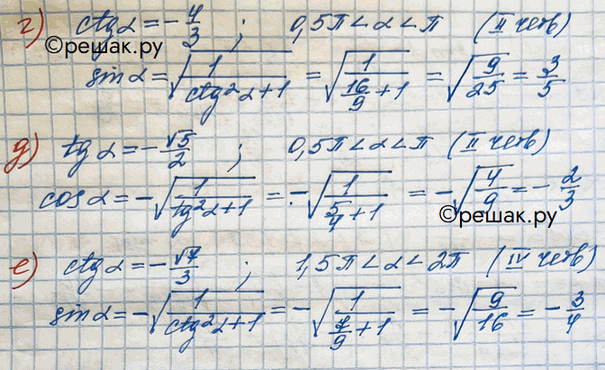 г) ctgα = -4/3 ; 0,5π < α < π (II четв)
©решак.ру
sinα = √(1/(ctg²α+1)) = √(1/(16/9+1)) = √(9/25) = 3/5
д) tgα = -√5/2 ; 0,5π < α < π (II четв)
cosα = -√(1/(tg²α+1)) = -√(1/(5/4+1)) = -√(4/9) = -2/3
©решак.ру
е) ctgα = -√7/3 ; 1,5π < α < 2π (IV четв)
sinα = -√(1/(ctg²α+1)) = -√(1/(7/9+1)) = -√(9/16) = -3/4